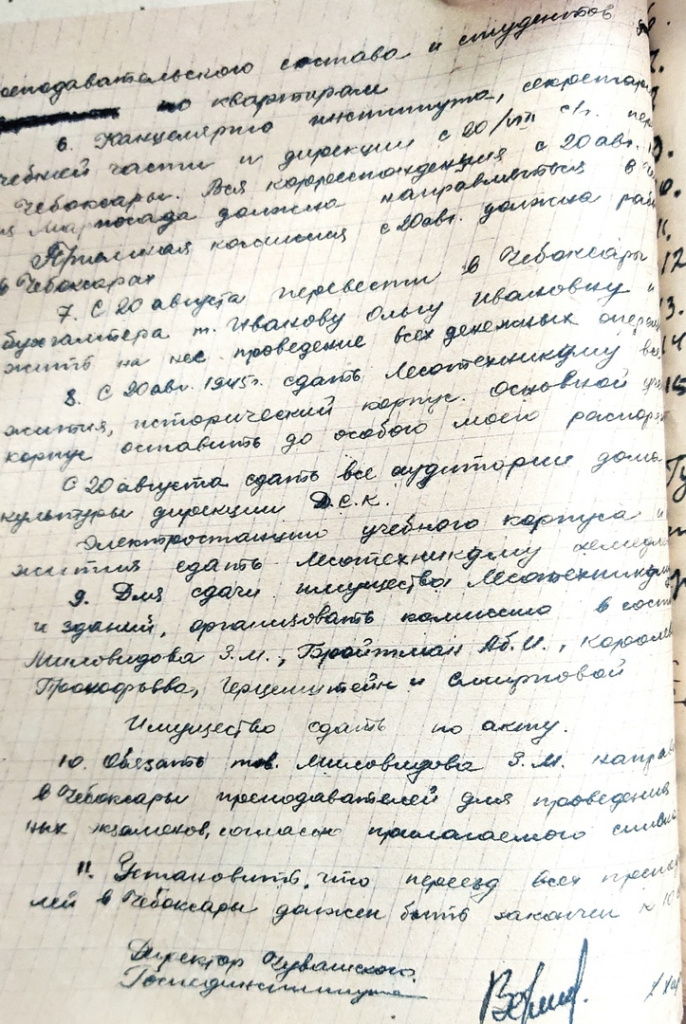 еподавательского состава и студентов
по квартирам
6. Канцелярию института, секретари
чебной части и дирекции с 20/VIII с/г. пер
Чебоксары. Вся корреспонденция с 20 авг.
из Марпосада должна направляться в
Приемная комиссия с 20 авг. должна раб
в Чебоксарах
7. С 20 августа перевести в Чебоксары
бухгалтера т. Иванову Ольгу Ивановну и
жить на нее проведение всех денежных опер
8. С 20 авг. 1945г. сдать Лесотехникуму все
жития, исторический корпус. Основной уч
корпус оставить до особого моего распоря
С 20 августа сдать все аудитории дома
культуры дирекции Д.С.К.
Электростанцию учебного корпуса и
жития сдать Лесотехникуму
9. Для сдачи имущества Лесотехникум
и зданий, организовать комиссию в сост
Миловидова З.М., Бройтман Аб.И., Королев
Прокофьева, Герценштейн и Смирновой
Имущество сдать по акту.
10. Обязать тов. Миловидова З.М. направ
в Чебоксары преподавателей для проведения
ных экзаменов, согласно прилагаемого списка
11. Установить, что переезд всех препод
лей в Чебоксары должен быть закончен к 10
Директор Чувашского
Госпединститута
12
14
15